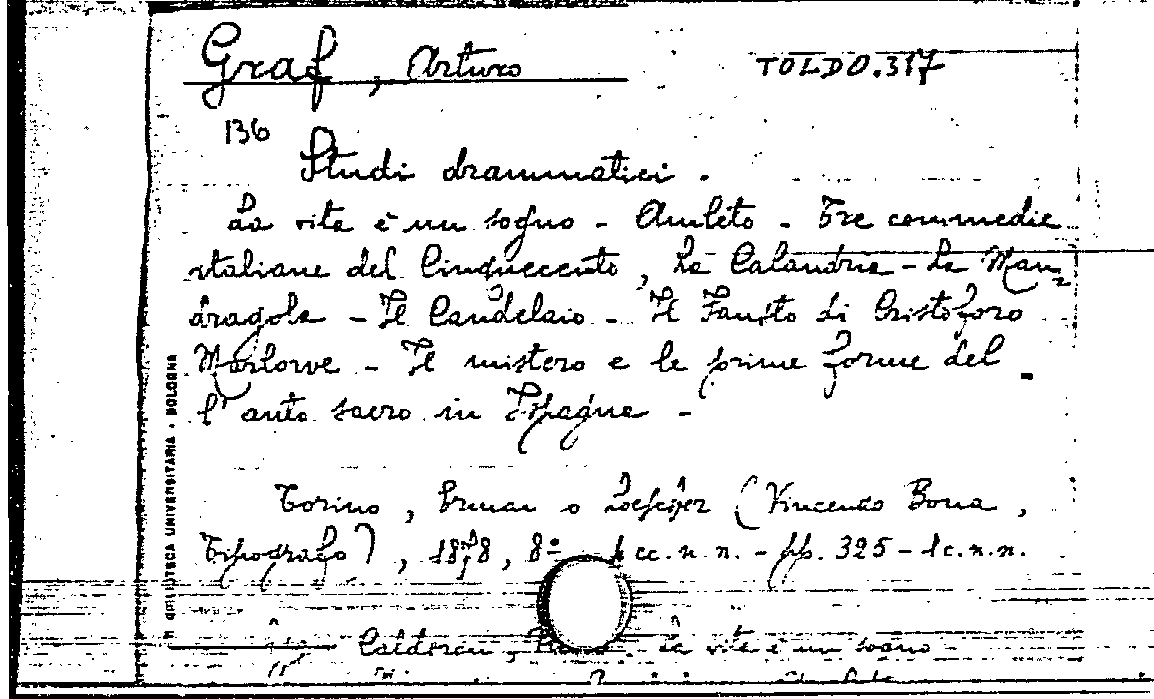 Graf, Arturo
TOLDO.317
136
Studi drammatici.
La vita è un sogno - Amleto - Tre commedie
italiane del Cinquecento, La Calandria - La Man-
dragola - Il Candelaio - Il Fausto di Cristoforo
Marlowe - Il mistero e le prime forme del
l'auto sacro in Ispagna -
Torino, Ermanno Loescher (Vincenzo Bona,
Tipografo), 1878, 8º cc.n.n. - pp. 325 - 1c.n.n.
BIBLIOTECA UNIVERSITARIA - BOLOGNA
Calderon, La vita è un sogno